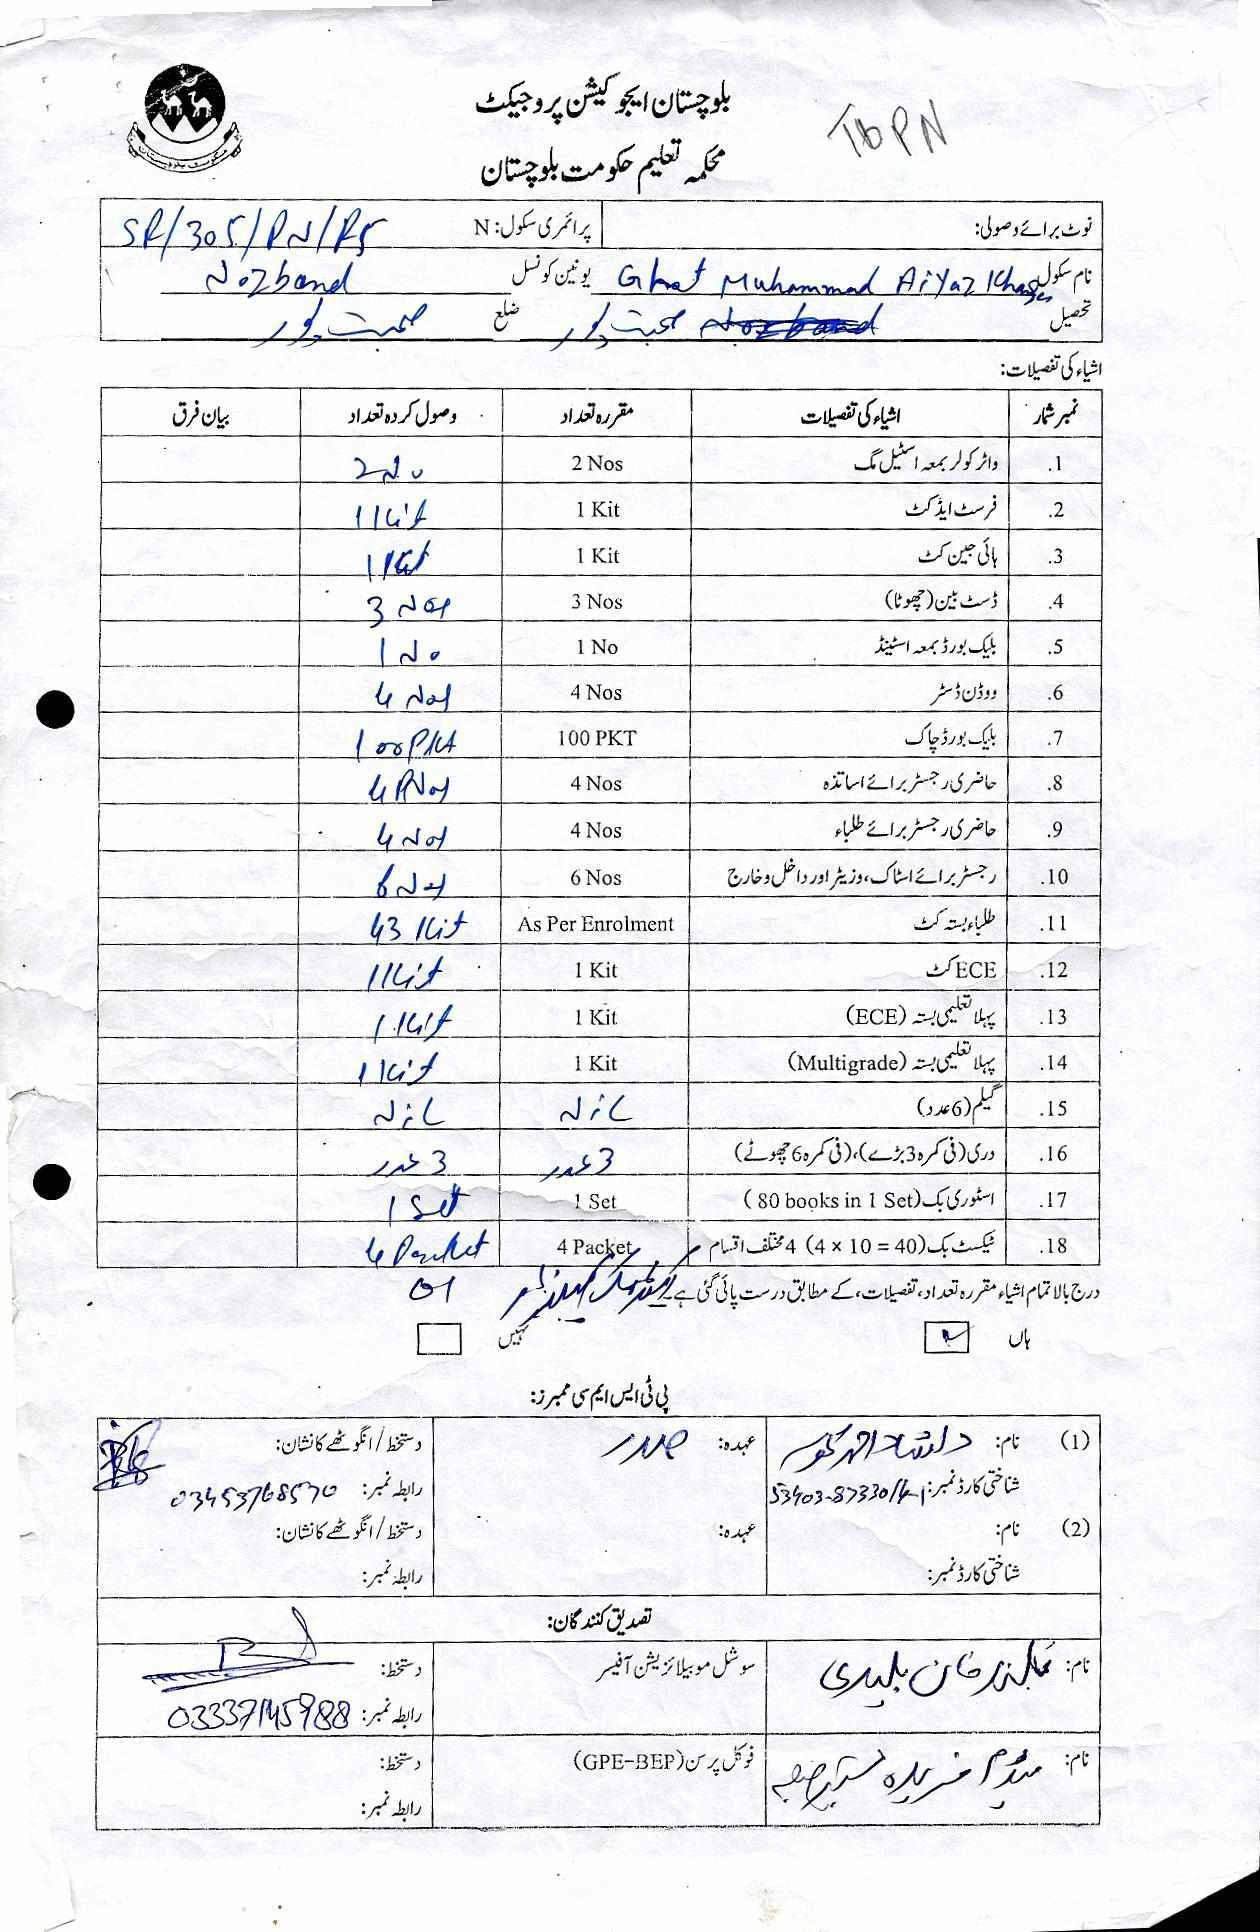 بلوچستان ایجوکیشن پروجیکٹ
TBPN
محکمہ تعلیم حکومت بلوچستان
نوٹ برائے وصولی: پرائمری سکول: N SR/305/PN/R5
نام سکول Ghot Muhammad Aiyaz یونین کونسل Nozband
تحصیل صحبت پور ضلع صحبت پور
اشیاء کی تفصیلات:
نمبر شمار اشیاء کی تفصیلات مقررہ تعداد وصول کردہ تعداد بیان فرق
1. واٹر کولر بمعہ اسٹیل مگ 2 Nos 2 No
2. فرسٹ ایڈ کٹ 1 Kit 1 Kit
3. ہائی جین کٹ 1 Kit 1 Kit
4. ڈسٹ بین (چھوٹا) 3 Nos 3 Nos
5. بلیک بورڈ بمعہ اسٹینڈ 1 No 1 No
6. ووڈن ڈسٹر 4 Nos 4 Nos
7. بلیک بورڈ چاک 100 PKT 100 PKT
8. حاضری رجسٹر برائے اساتذہ 4 Nos 4 Nos
9. حاضری رجسٹر برائے طلباء 4 Nos 4 Nos
10. رجسٹر برائے اسٹاک، وزیٹر اور داخل و خارج 6 Nos 6 Nos
11. طلباء بستہ کٹ As Per Enrolment 43 Kit
12. ECE کٹ 1 Kit 1 Kit
13. پہلا تعلیمی بستہ (ECE) 1 Kit 1 Kit
14. پہلا تعلیمی بستہ (Multigrade) 1 Kit 1 Kit
15. گیلم (6 عدد) Nil Nil
16. دری (فی کمرہ 3 بڑے)، (فی کمرہ 6 چھوٹے) 3 عدد 3 عدد
17. اسٹوری بک (80 books in 1 Set) 1 Set 1 Set
18. ٹیکسٹ بک (4 × 10 = 40) 4 مختلف اقسام 4 Packet 4 Packet
درج بالا تمام اشیاء مقررہ تعداد، تفصیلات، کے مطابق درست پائی گئی ہے۔ 01
ہاں نہیں
پی ٹی ایس ایم سی ممبرز:
(1) نام: عہدہ: صدر دستخط/انگوٹھے کا نشان:
شناختی کارڈ نمبر: رابطہ نمبر: 03453768570
(2) نام: عہدہ: دستخط/انگوٹھے کا نشان:
شناختی کارڈ نمبر: رابطہ نمبر:
تصدیق کنندگان:
نام: خان بلیدی سوشل موبیلائزیشن آفیسر دستخط:
رابطہ نمبر: 03337145988
نام: میڈم فریدہ فوکل پرسن (GPE-BEP) دستخط:
رابطہ نمبر: